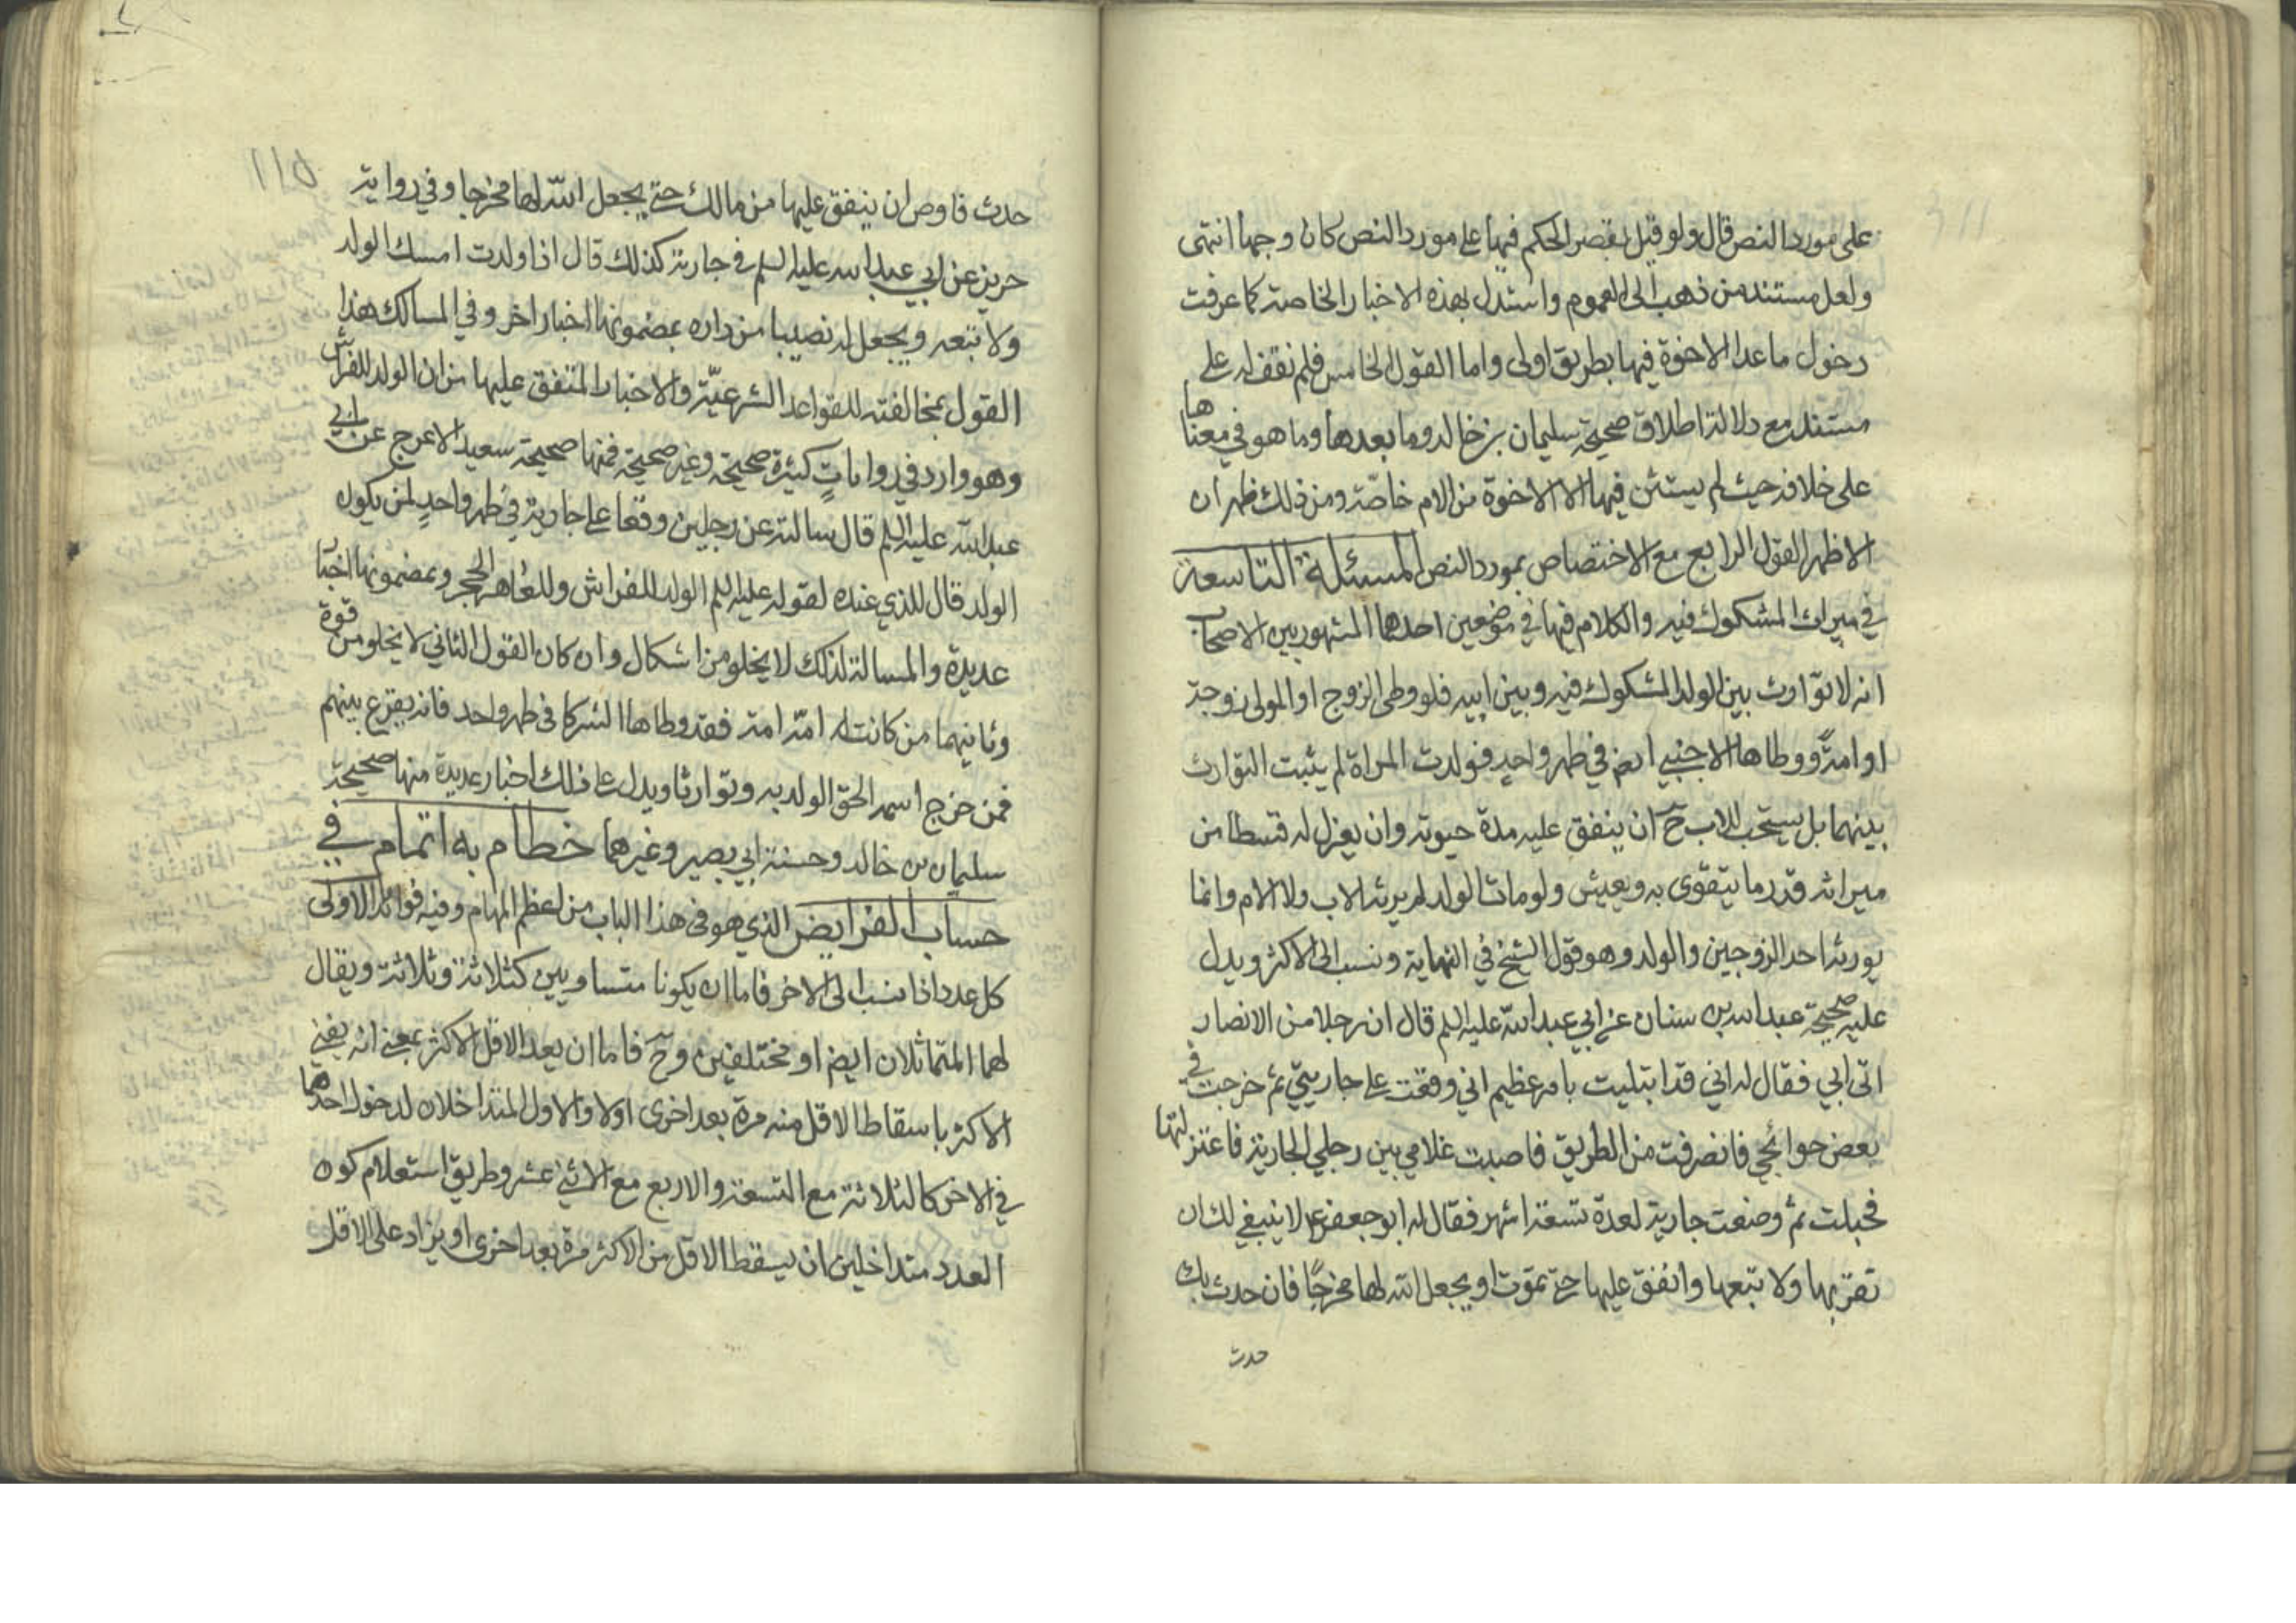 على مورد النص قال ولو قيل بقصر الحكم فيها على مورد النص كان وجها انتهى
ولعل مستند من ذهب الى العموم واستدل بهذه الاخبار الخاصة كما عرفت
دخول ما عدا الاخوة فيها بطريق اولى واما القول الخامس فلم نقف له على
مستند مع دلالة اطلاق صحيحة سليمان بن خالد وما بعدها وما هو في معناها
على خلافه حيث لم يستثن فيها الا الاخوة من الام خاصة ومن ذلك ظهر ان
الاظهر القول الرابع مع الاختصاص بمورد النص المسئلة التاسعة
في ميراث المشكوك فيه والكلام فيها في موضعين احدهما المشهور بين الاصحاب
انه لا توارث بين الولد المشكوك فيه وبين ابيه فلو وطى الزوج او المولى زوجة
او امة ووطاها الاجنبي ايض في طهر واحد فولدت المراة لم يثبت التوارث
بينهما بل يستحب للاب ح ان ينفق عليه مدة حيوته وان يعزل له قسطا من
ميراثه قدر ما يتقوى به ويعيش ولو مات الولد لم يرثه الاب ولا الام وانما
يورثه احد الزوجين والولد وهو قول الشيخ في النهاية ونسب الى الاكثر ويدل
عليه صحيحة عبد الله بن سنان عن ابي عبد الله عليه السلم قال ان رجلا من الانصار
اتى ابي فقال له اني قد ابتليت بامر عظيم اني وقعت على جاريتي ثم خرجت في
بعض حوائجي فانصرفت من الطريق فاصبت غلامي بين رجلي الجارية فاعتزلتها
فحبلت ثم وضعت جارية لعدة تسعة اشهر فقال له ابو جعفر ع لا ينبغي لك ان
تقربها ولا تبعها وانفق عليها حتى تموت او يجعل الله لها مخرجا فان حدث بك
حدث
١١٥
حدث فاوص ان ينفق عليها من مالك حتى يجعل الله لها مخرجا وفي رواية
حريز عن ابي عبد الله عليه السلم في جارية كذلك قال اذا ولدت امسك الولد
ولا تبعه ويجعل له نصيبا من داره بمضمونها اخبار اخر وفي المسالك هذا
القول بمخالفته للقواعد الشرعيّة والاخبار المتفق عليها من ان الولد للفراش
وهو وارد في روايات كثيرة صحيحة وغير صحيحة فمنها صحيحة سعيد الاعرج عن ابي
عبد الله عليه السلم قال سالته عن رجلين وقعا على جارية في طهر واحد لمن يكون
الولد قال للذي عنده لقوله عليه السلم الولد للفراش وللعاهر الحجر وبمضمونها اخبار
عديدة والمسالة لذلك لا يخلو من اشكال وان كان القول الثاني لا يخلو من قوة
وثانيهما من كانت له امّه امة فقد وطاها الشركا في طهر واحد فانه يقرع بينهم
فمن خرج اسمه الحق الولد به وتوارثا ويدل على ذلك اخبار عديدة منها صحيحة
سليمان بن خالد وحسنة ابي بصير وغيرهما خطام به اتمام في
حساب الفرايض الذي هو في هذا الباب من اعظم المهام وفيه فوائد الاولى
كل عدد اذا نسب الى الاخر فاما ان يكونا متساويين كثلاثة وثلاثة ويقال
لهما المتماثلان ايض او مختلفين وح فاما ان يعد الاقل الاكثر بمعنى انه يفنى
الاكثر باسقاط الاقل منه مرة بعد اخرى اولا والاول المتداخلان لدخول احدهما
في الاخر كالثلاثة مع التسعة والاربع مع الاثني عشر وطريق استعلام كون
العدد متداخلين ان يسقط الاقل من الاكثر مرة بعد اخرى او يزاد على الاقل